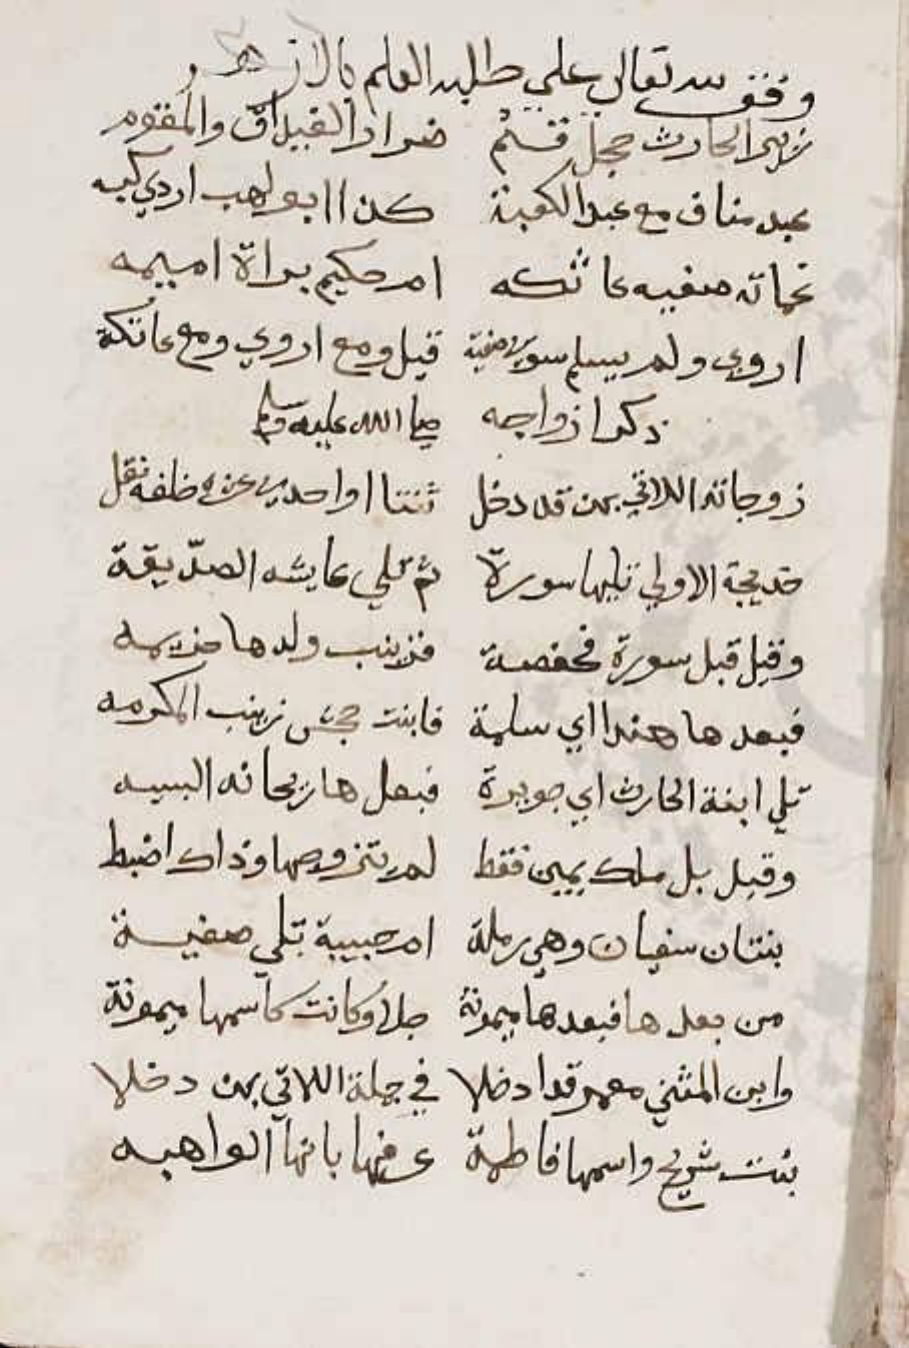 وقف لله تعالى على طلبة العلم بالازهر
زبير الحارث حجل قثم ضرار الغيداق والمقوم
عبد مناف مع عبد الكعبة كذا ابو لهب اردي كبه
عماته صفيه عاتكه ام حكيم براة اميمه
اروى ولم يسلم سوى صفية قيل ومع اروي ومع عاتكة
ذكر ازواجه صلى الله عليه وسلم
زوجاته اللاتي بهن قد دخل ثنتا او احدى عشره خلفه نقل
خديجة الاولي تليها سورة ثم تلي عايشه الصديقة
وقيل قبل سورة فحفصة فزينب ولدها خزيمه
فبعدها هندا اي سلمة فابنت جحش زينب المكرمه
تلي ابنة الحارث اي جويرة فبعدها ريحانه السبيه
وقيل بل ملك يمين فقط لم يتزوجها وذاك اضبط
بنتان سفيان وهي رملة ام حبيبة تلي صفية
من بعدها فبعدها ميمونة حلا وكانت كاسمها ميمونة
وابن المثني معمر قد ادخلا في جملة اللاتي بهن دخلا
بنت شريح واسمها فاطمة عرفها بانها الواهبه